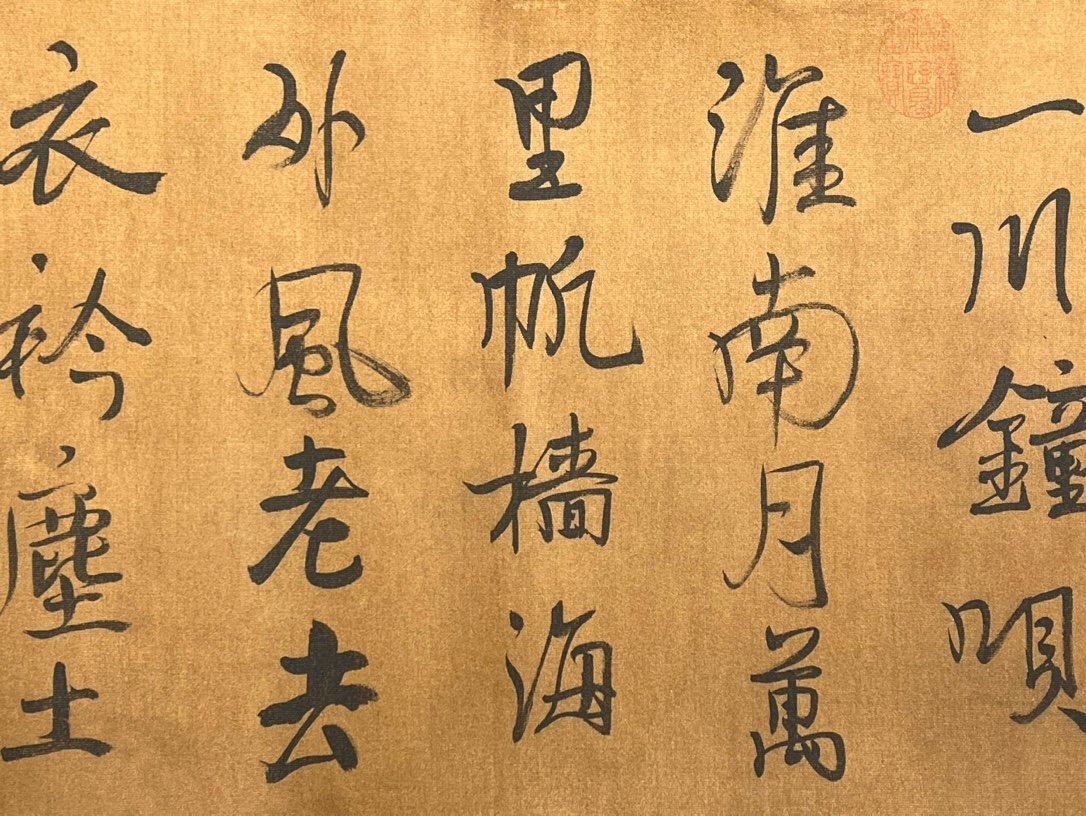 一川鐘唄
淮南月萬
里帆檣海
外風老去
衣衿塵土